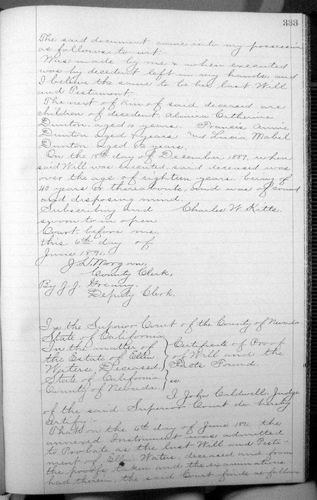 333
The said document came into my possession
as follows to wit
Was made by me & when executed
was by decedent left in my hands and
I believe the same to be her last Will
and Testament
The next of kin of said deceased are
children of decedent, Almira Catherine
Dunton aged 11 years. Francis Annie
Dunton aged 9 years. and Susan Mabel
Dunton aged 6 years.
On the 18th day of December 1889, when
said Will was executed said decedent was
over the age of eighteen years being of
40 years or thereabouts, and was of sound
and disposing mind.
Subscribed and Charles W. Kitts
sworn to in open
Court before me
this 6th day of
June 1891.
J. L. Morgan,
County Clerk,
By J. J. Greany,
Deputy Clerk.
In the Superior Court of the County of Nevada
State of California
In the matter of Certificate of Proof
the Estate of Ellen of Will and the
Waters, Deceased, Facts Found.
State of California
County of Nevada ss
I John Caldwell Judge
of the said Superior Court do hereby
certify:
That on the 6th day of June 1891 the
annexed Instrument was admitted
to Probate as the last Will and Testa-
ment of Ellen Waters, deceased and from
the proofs taken and the examinations
had therein the said Court finds as follows